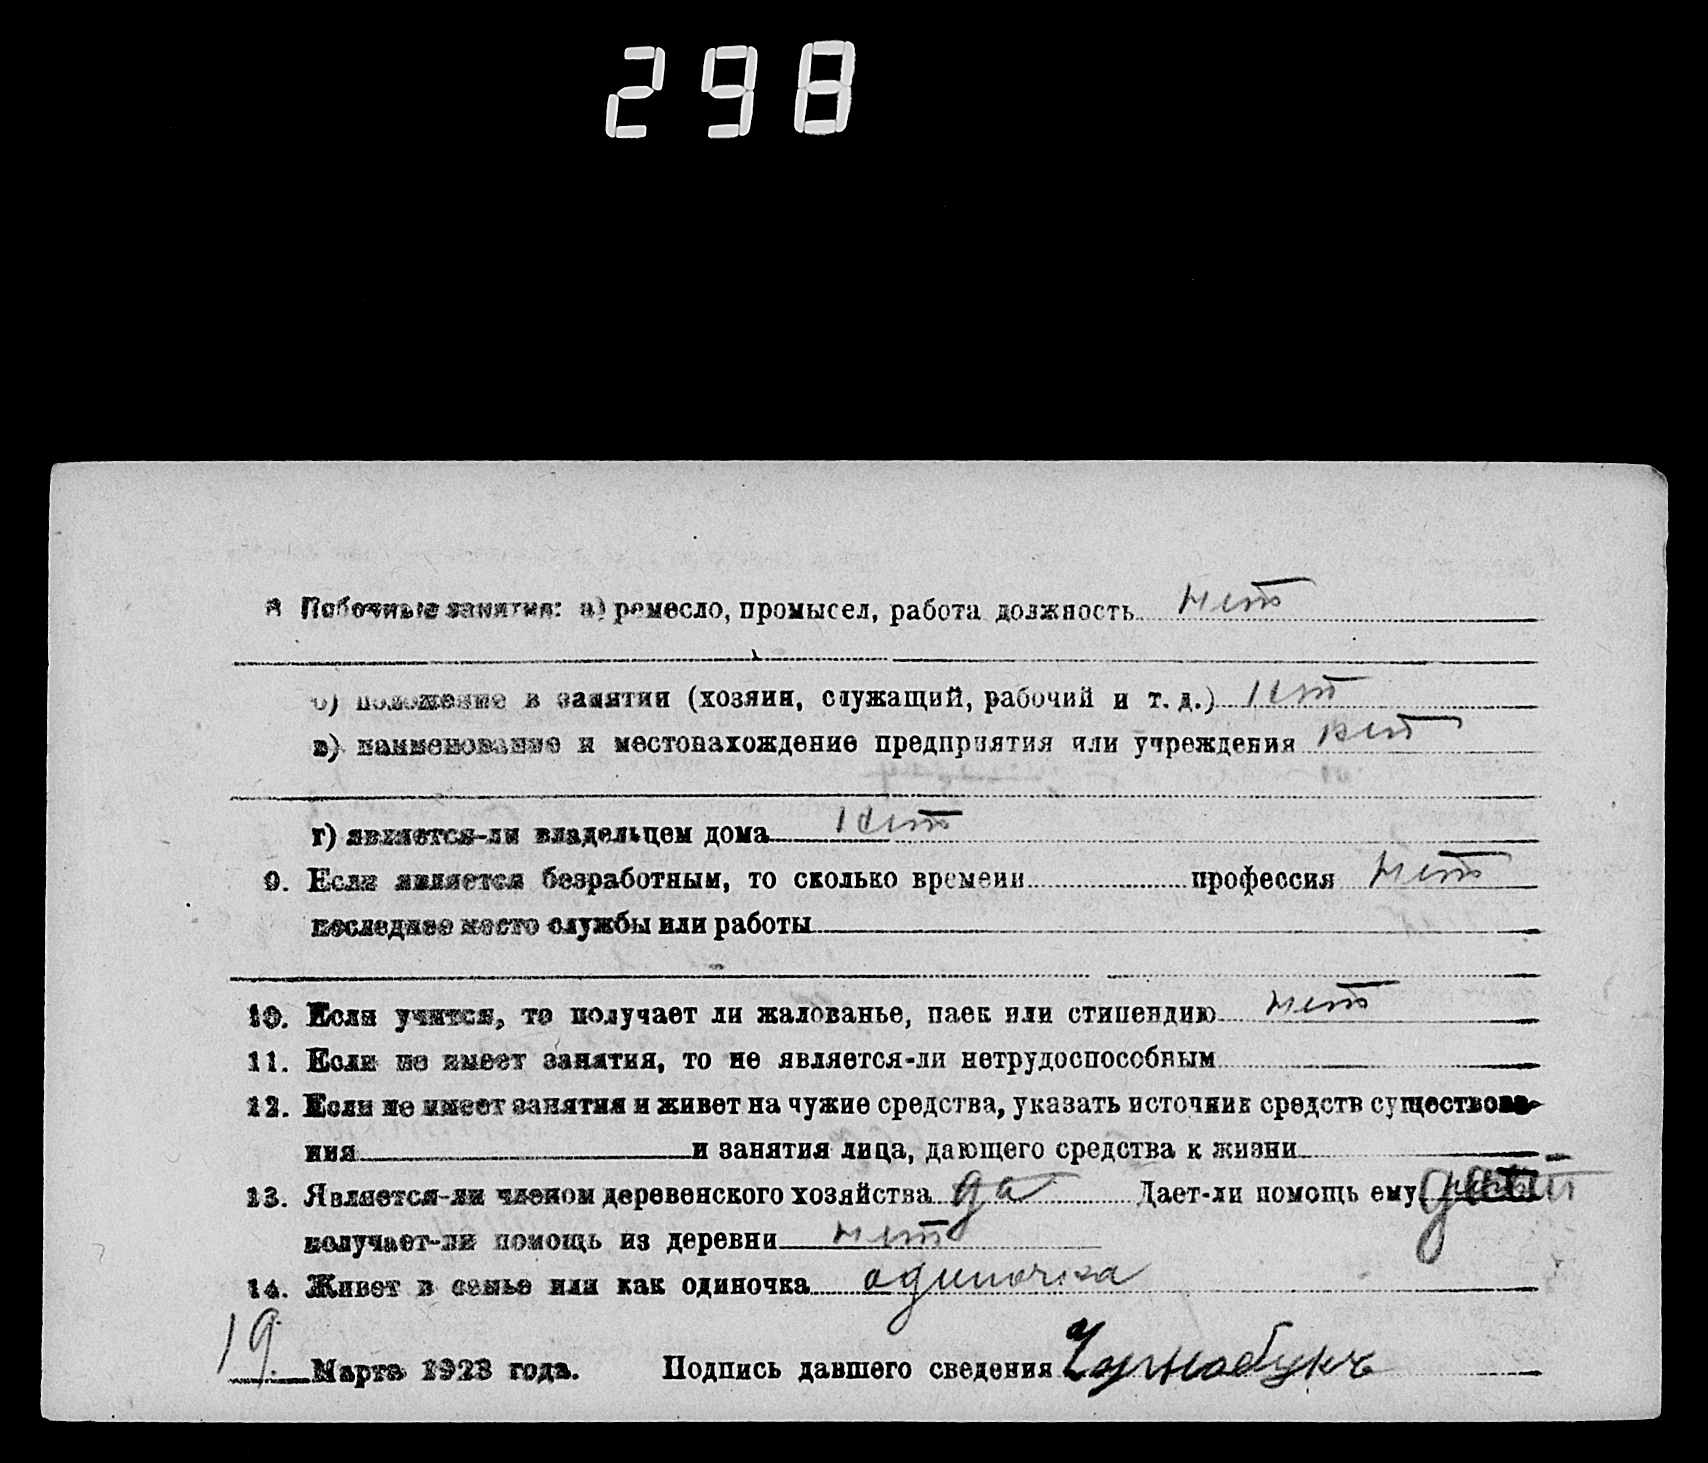 298
8 Побочные занятия: а) ремесло, промысел, работа должность нет
б) положение в занятии (хозяин, служащий, рабочий и т. д.) нет
в) наименование и местонахождение предприятия или учреждения нет
г) является-ли владельцем дома нет
9. Если является безработным, то сколько времени профессия нет
последнее место службы или работы
10. Если учится, то получает ли жалованье, паек или стипендию нет
11. Если не имеет занятия, то не является-ли нетрудоспособным
12. Если не имеет занятия и живет на чужие средства, указать источник средств существова-
ния и занятия лица, дающего средства к жизни
13. Является-ли членом деревенского хозяйства да Дает-ли помощь ему дает
получает-ли помощь из деревни нет
14. Живет в семье или как одиночка одиночка
19 Марта 1923 года. Подпись давшего сведения